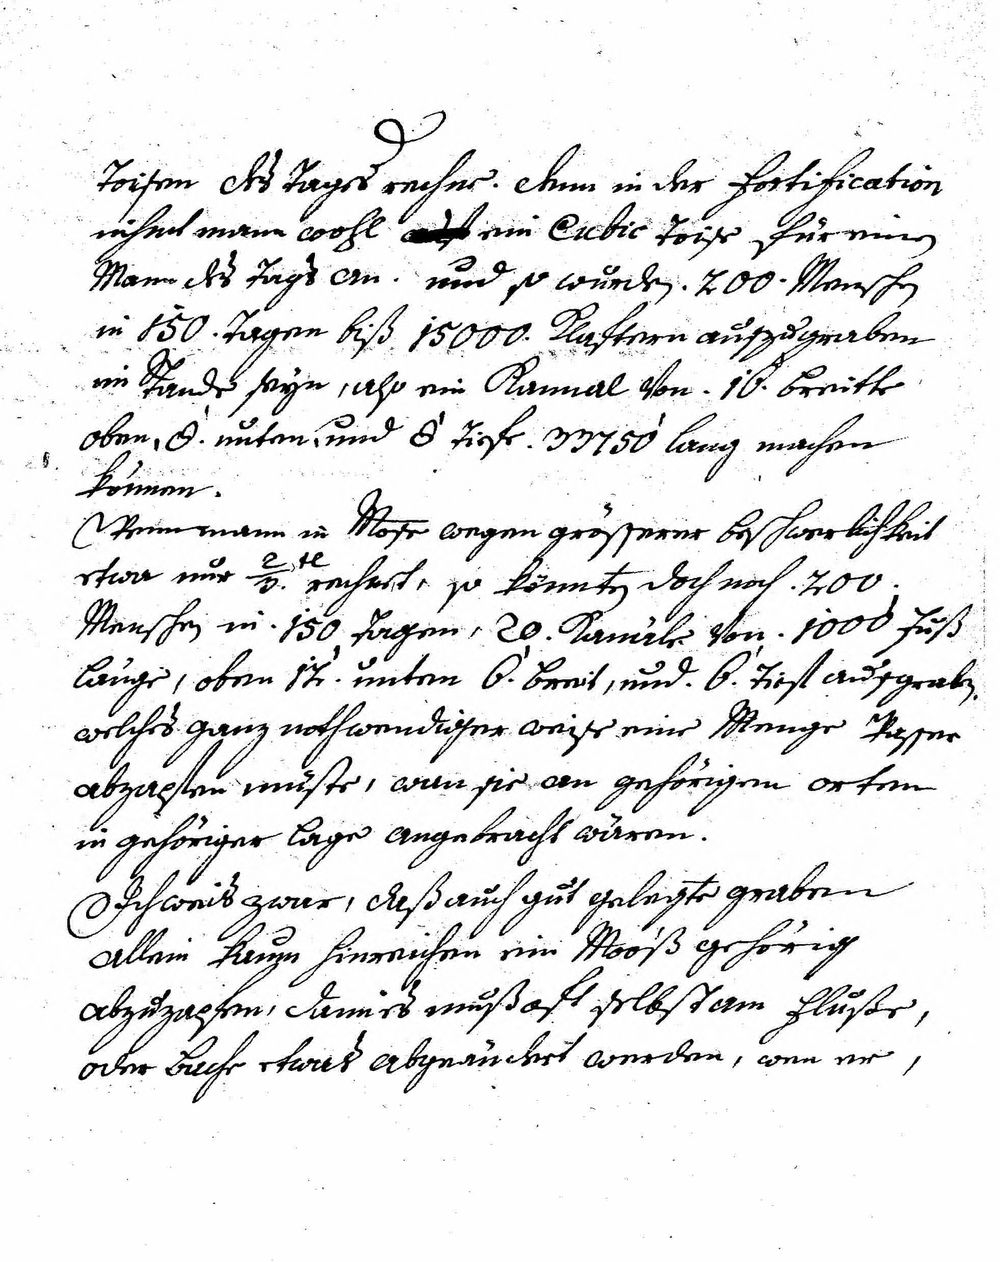 Toisen des Tages rechne. denn in der Fortification
nihmt mann wohl ein Cubic Toise für einen
Mann des Tags an. und so wurden. 200. Menschen
in 150. Tagen biß 15000. Klaftern auszugraben
im Stande seyn, also ein Kannal von. 10. breitte
oben, 8'. unten, und 8' Tiefe. 33750' lang machen
können.
Wenn mann in Mose wegen grösserer beschwerlichkeit
etwa nur 2/3. tl rechnet, so könnten doch noch. 200.
Menschen in. 150 Tagen, 20. Kanäle von. 1000' Fuß
länge, oben 12'. unten 6'. breit, und. 6'. Tief ausgraben,
welches ganz nothwendiger weise eine Menge Wasser
abzapfen müste, wan sie an gehörigem orten
in gehöriger lage angebracht wären.
Ich weis zwar, daß auch gut gelegte graben
allein kaum hinreichen ein Mooß gehörig
abzuzapfen, dann es muß oft selbst am Fluße,
oder bache etwas abgeändert werden, wen er,